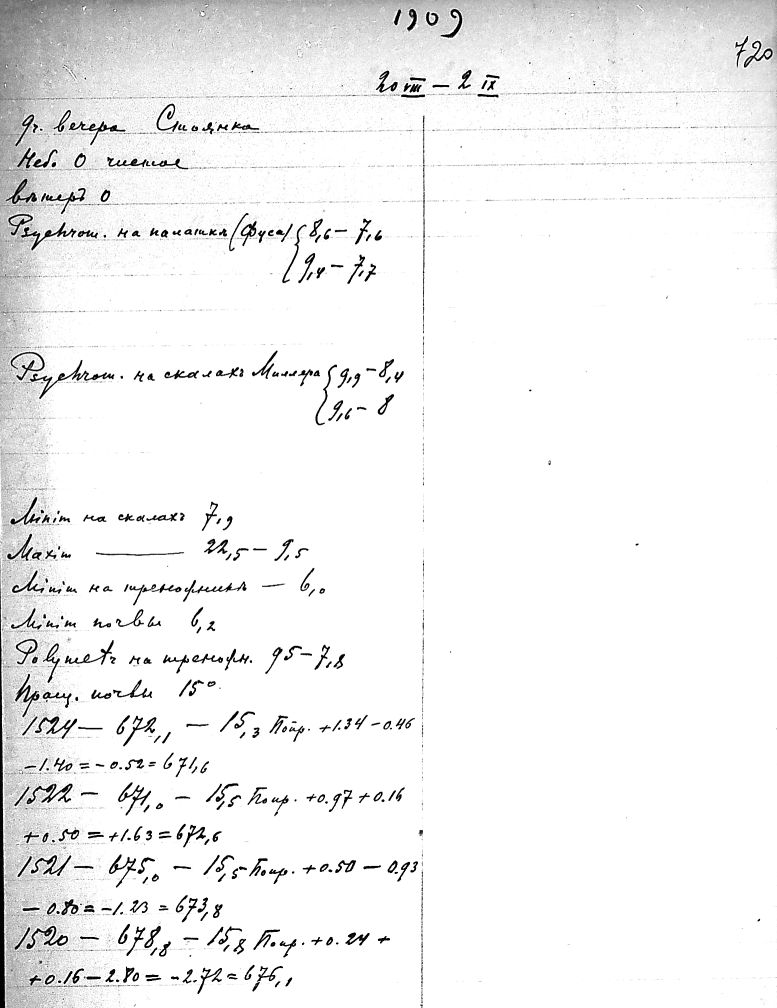 1909
720
20 VIII — 2 IX
9 ч. вечера Стоянка
Небо 0 чистое
вѣтеръ 0
Psychrom. на палаткѣ (Фуса) { 8,6 — 7,6
{ 9,4 — 7,7
Psychrom. на скалахъ Миллера { 9,9 — 8,4
{ 9,6 — 8
Minim на скалахъ 7,9
Maxim ——— 22,5 — 9,5
Minim на треножникѣ — 6,0
Minim почвы 6,2
Polymetr на треножн. 95 — 7,8
Пращ. почвы 15°
1524 — 672,1 — 15,3 Попр. +1.34 — 0.46
— 1.40 = — 0.52 = 671,6
1522 — 671,0 — 15,5 Попр. +0.97 +0.16
+0.50 = +1.63 = 672,6
1521 — 675,0 — 15,5 Попр. +0.50 — 0.93
— 0.80 = — 1.23 = 673,8
1520 — 678,8 — 15,8 Попр. +0.24 +
+0.16 — 2.80 = — 2.72 = 676,1